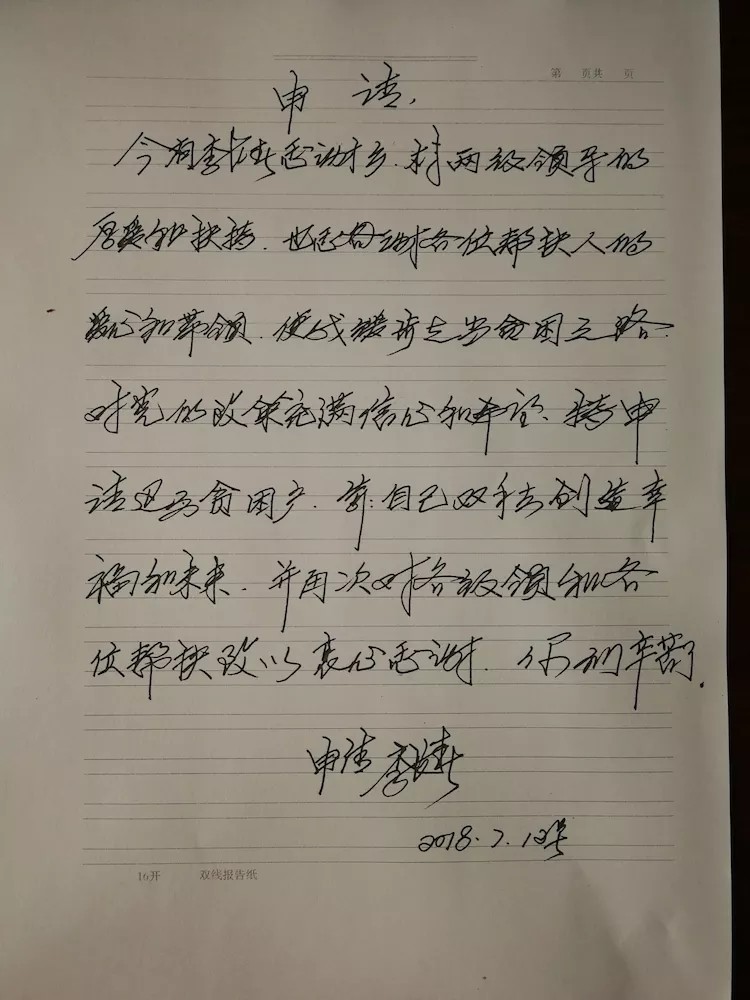 第 页共 页
申 请,
今有李长青感谢村乡.村两级领导的
厚爱和扶持.也感谢各位帮扶人的
爱心和带领.使我逐步走出贫困之路.
对党的政策充满信心和希望、特申
请退出贫困户.靠自己双手去创造幸
福和未来.并再次对各级领和各
位帮扶致以衷心感谢.你们辛苦了.
申请 李长青
2018.7.12号
16开 双线报告纸